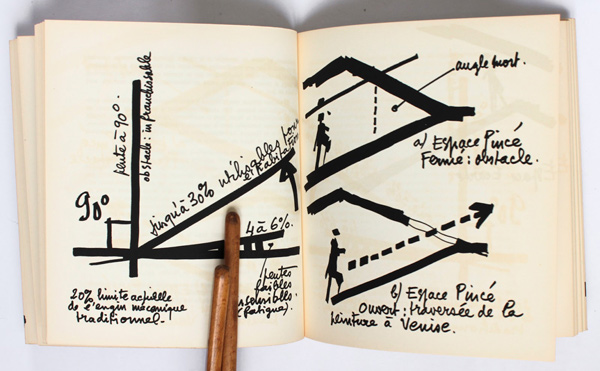 pente à 90°.
obstacle: infranchissable
90°
jusqu'à 30% utilisables pour
4 à 6%.
pentes
faibles
(fatigue).
20% limite actuelle
de l'engin mécanique
traditionnel-
angle mort.
a) Espace Pincé
Fermé: obstacle.
b) Espace Pincé
ouvert: traversée de la
peinture à Venise.